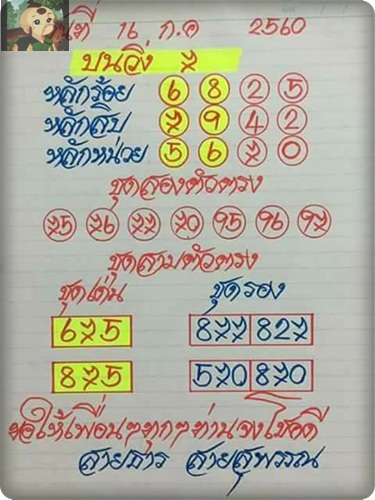 วันที่ 16 ก.ค 2560
บนวิ่ง 7
หลักร้อย 6 8 2 5
หลักสิบ 7 9 4 2
หลักหน่วย 5 6 7 0
ชุดสองตัวตรง
75 76 77 70 95 96 97
ชุดสามตัวตรง
ชุดเด่น ชุดรอง
675 877 827
875 570 870
ขอให้เพื่อนๆทุกๆท่านจงโชคดี
สายธาร สายสุพรรณ